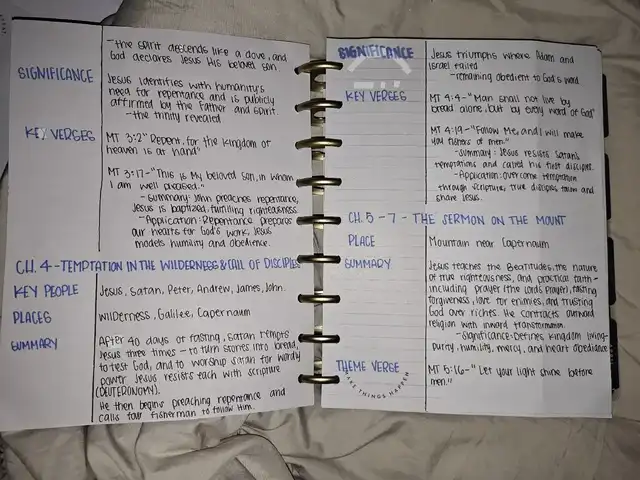 -the spirit descends like a dove, and
God declares Jesus His beloved son
SIGNIFICANCE
Jesus identifies with humanity's
need for repentance and is publicly
affirmed by the Father and Spirit
-the trinity revealed
KEY VERSES
MT 3:2 "Repent, for the kingdom of
heaven is at hand"
MT 3:17-"This is My beloved son, in whom
I am well pleased."
-Summary: John preaches repentance,
Jesus is baptized, fulfilling righteousness
-Application: Repentance prepares
our hearts for God's work, Jesus
models humility and obedience.
CH. 4 - TEMPTATION IN THE WILDERNESS & CALL OF DISCIPLES
KEY PEOPLE
Jesus, Satan, Peter, Andrew, James, John.
PLACES
Wilderness, Galilee, Capernaum
SUMMARY
After 40 days of fasting, Satan tempts
Jesus three times - to turn stones into bread,
to test God, and to worship Satan for worldly
power. Jesus resists each with scripture
(DEUTERONOMY).
He then begins preaching repentance and
calls four fisherman to follow Him.
SIGNIFICANCE
Jesus triumphs where Adam and
Israel failed
-remaining obedient to God's word
KEY VERSES
MT 4:4-"Man shall not live by
bread alone, but by every word of God"
MT 4:19-"Follow Me, and I will make
you fishers of men."
-Summary: Jesus resists Satan's
temptations and called his first disciples.
-Application: overcome temptation
through scripture, true disciples follow and
share Jesus.
CH. 5 - 7 - THE SERMON ON THE MOUNT
PLACE
Mountain near Capernaum
SUMMARY
Jesus teaches the Beatitudes, the nature
of true righteousness, and practical faith-
including prayer (the Lord's prayer), fasting
forgiveness, love for enemies, and trusting
God over riches. He contracts outward
religion with inward transformation.
-Significance: Defines kingdom living-
purity, humility, mercy, and heart obedience
THEME VERSE
MT 5:16-"Let your light shine before
men."
MAKE THINGS HAPPEN